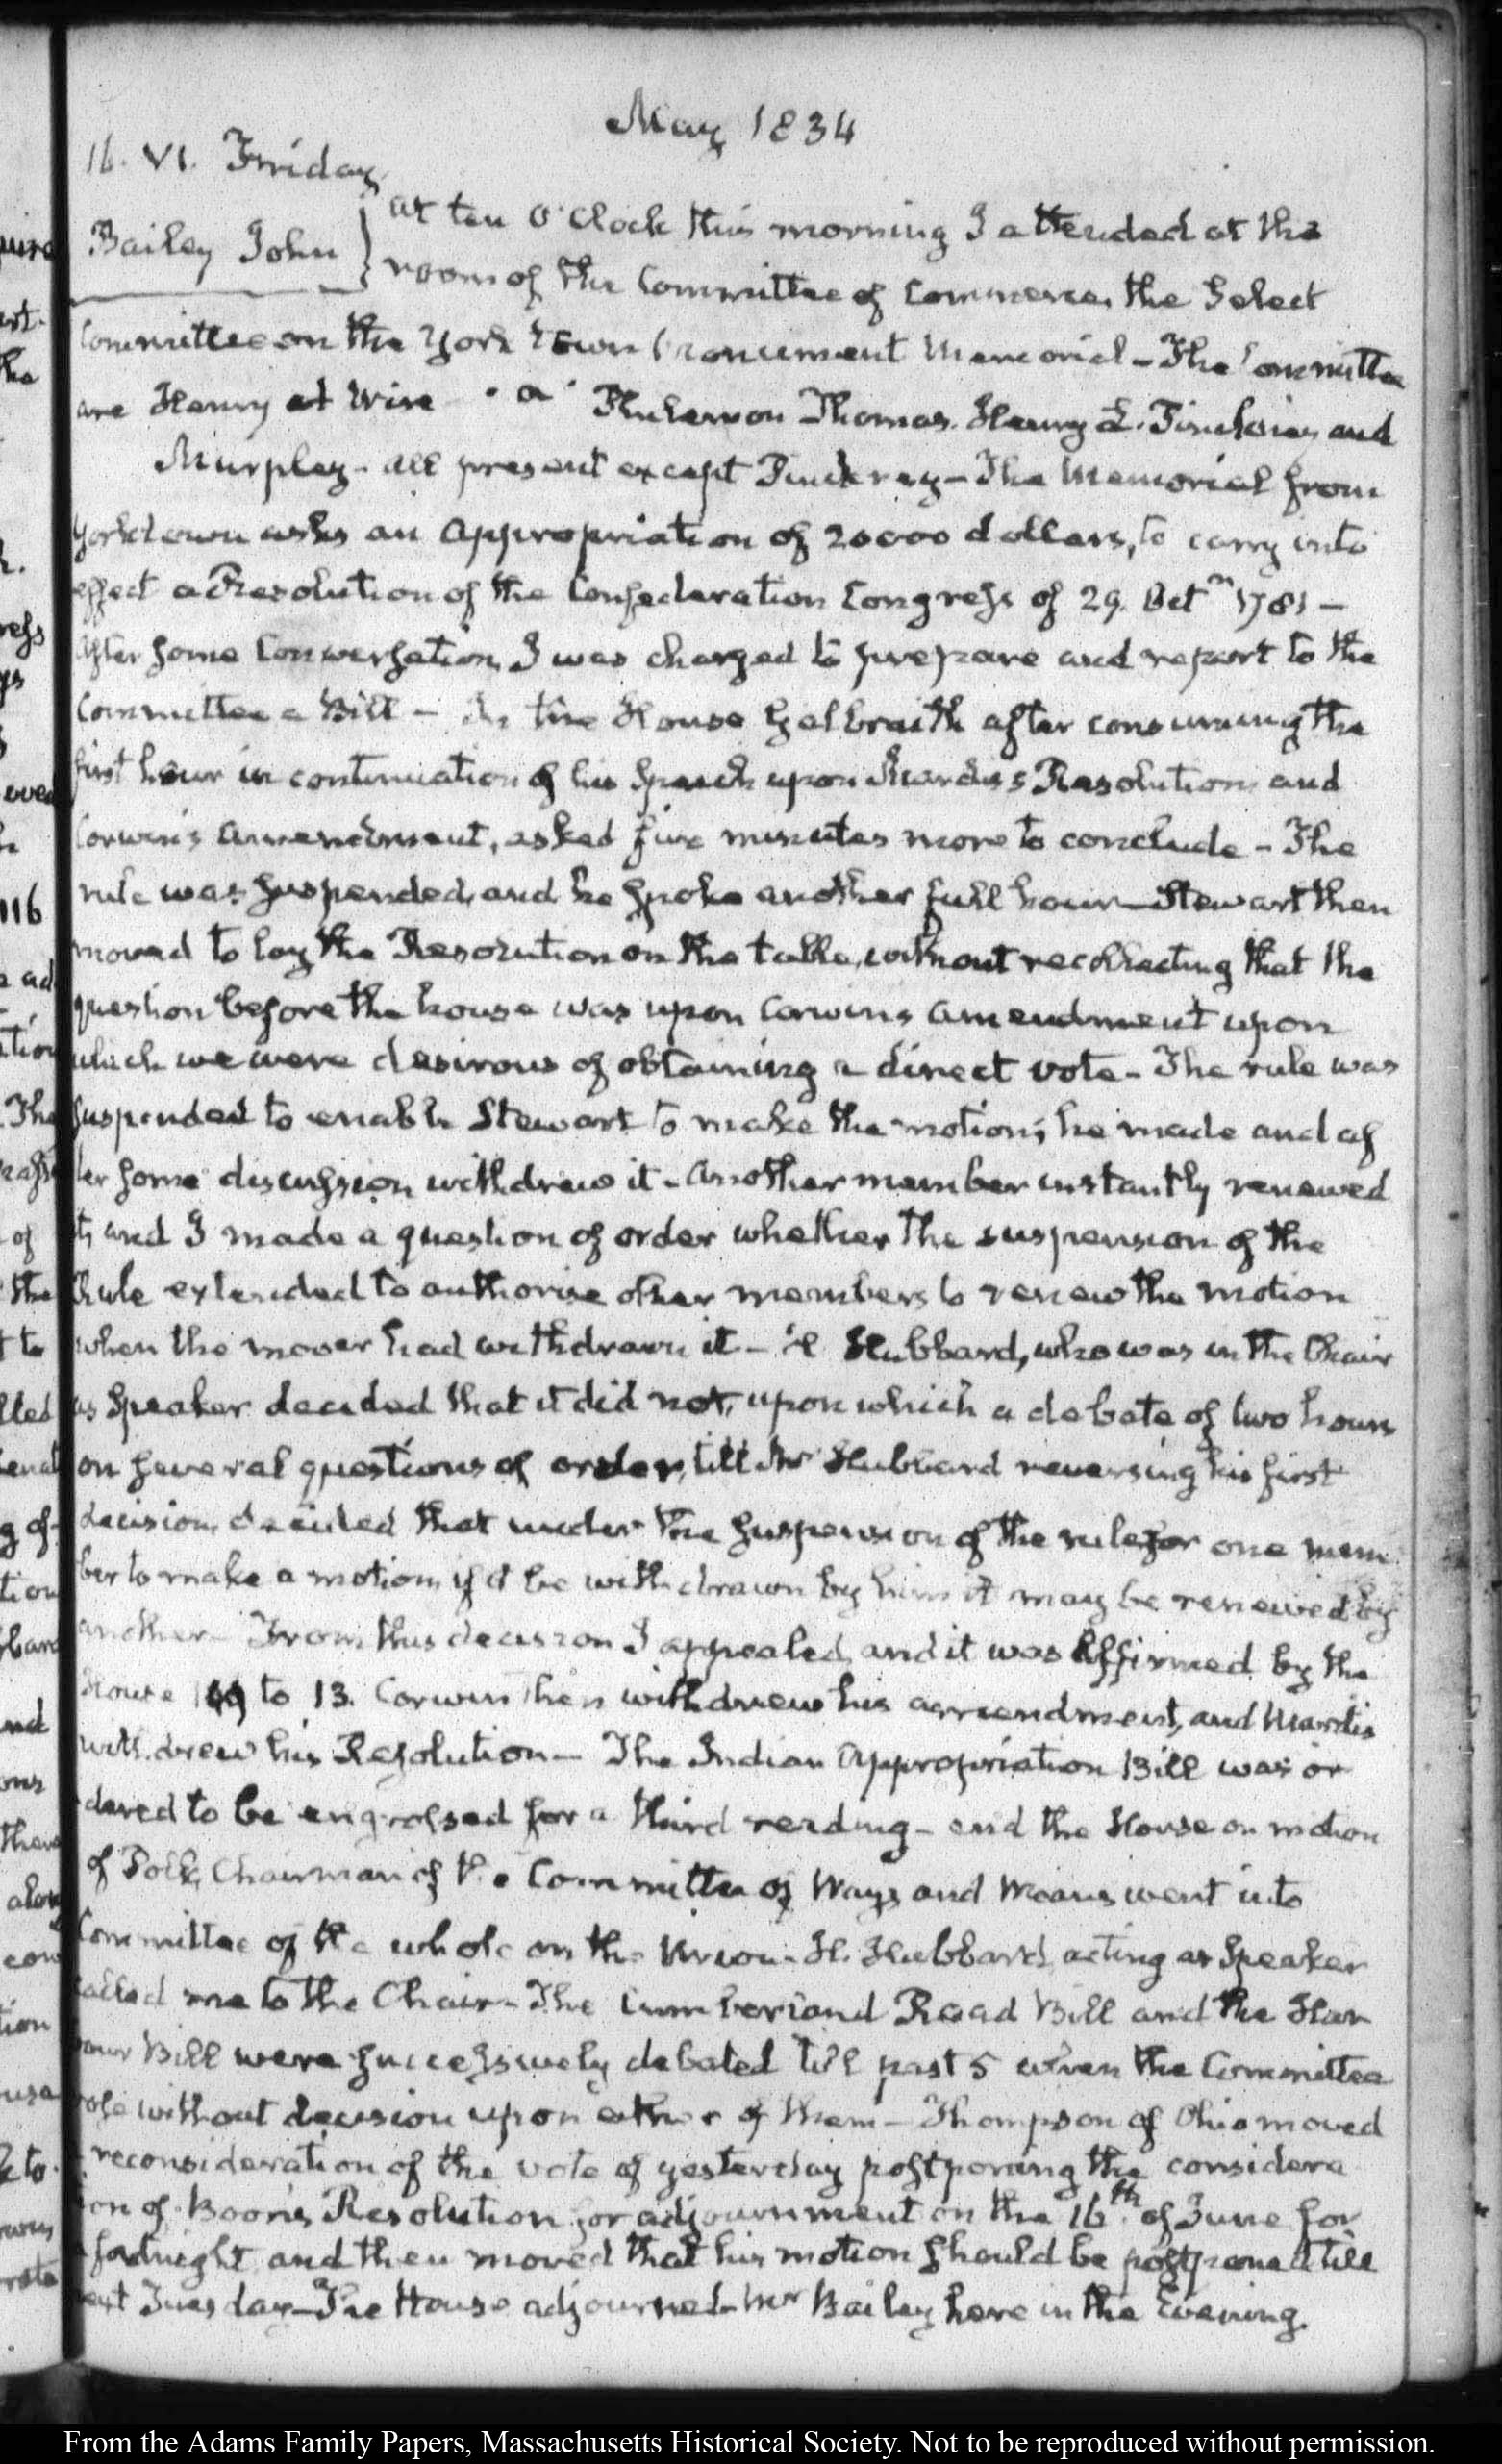 May 1834
16. VI. Friday
Bailey John
at ten O'Clock this morning I attended at the
room of the Committee of Commerce, the Select
Committee on the York town Monument Memorial – The Committee
are Henry A Wise Thomas Henry L. Pinckney and
Murphy – all present except Pinckney – The Memorial from
Yorktown asks an appropriation of 20000 dollars, to carry into
effect a Resolution of the Confederation Congress of 29. Oct 1781 –
After some Conversation, I was charged to prepare and report to the
Committee a Bill – In the House Galbraith after consuming the
first hour in continuation of his Speech upon Mardis's Resolution and
Corwin's amendment, asked five minutes more to conclude – The
rule was suspended, and he spoke another full hour – Stewart then
moved to lay the Resolution on the table, without recollecting that the
question before the house was upon Corwins amendment upon
which we were desirous of obtaining a direct vote – The rule was
suspended to enable Stewart to make the motion; he made and af
ter some discussion withdrew it – another member instantly renewed
it, and I made a question of order whether the suspension of the
Rule extended to authorise other members to renew the motion
when the mover had withdrawn it – Hubbard, who was in the Chair
as Speaker decided that it did not, upon which a debate of two hours
on several questions of order, till Mr Hubbard reversing his first
decision, decided that under the suspension of the rule for one mem
ber to make a motion, if it be withdrawn by him it may be renewed by
another – From this decision I appealed, and it was affirmed by the
House to 13. Corwin then withdrew his amendment, and Mardis
withdrew his Resolution – The Indian Appropriation Bill was or
dered to be engrossed for a third reading – and the House on motion
of Polk, Chairman of the Committee of Ways and Means went into
Committee of the whole on the Union – H. Hubbard, acting as Speaker
called me to the Chair – The Cumberland Road Bill and the Har
bour Bill were successively debated till past 5 when the Committee
rose without decision upon either of them – Thompson of Ohio moved
a reconsideration of the vote of yesterday postponing the considera
tion of Boon's Resolution for adjournment on the 16th. of June for
a fortnight and then moved that his motion should be postponed till
next Tuesday – The House adjourned – Mr Bailey here in the Evening.
From the Adams Family Papers, Massachusetts Historical Society. Not to be reproduced without permission.